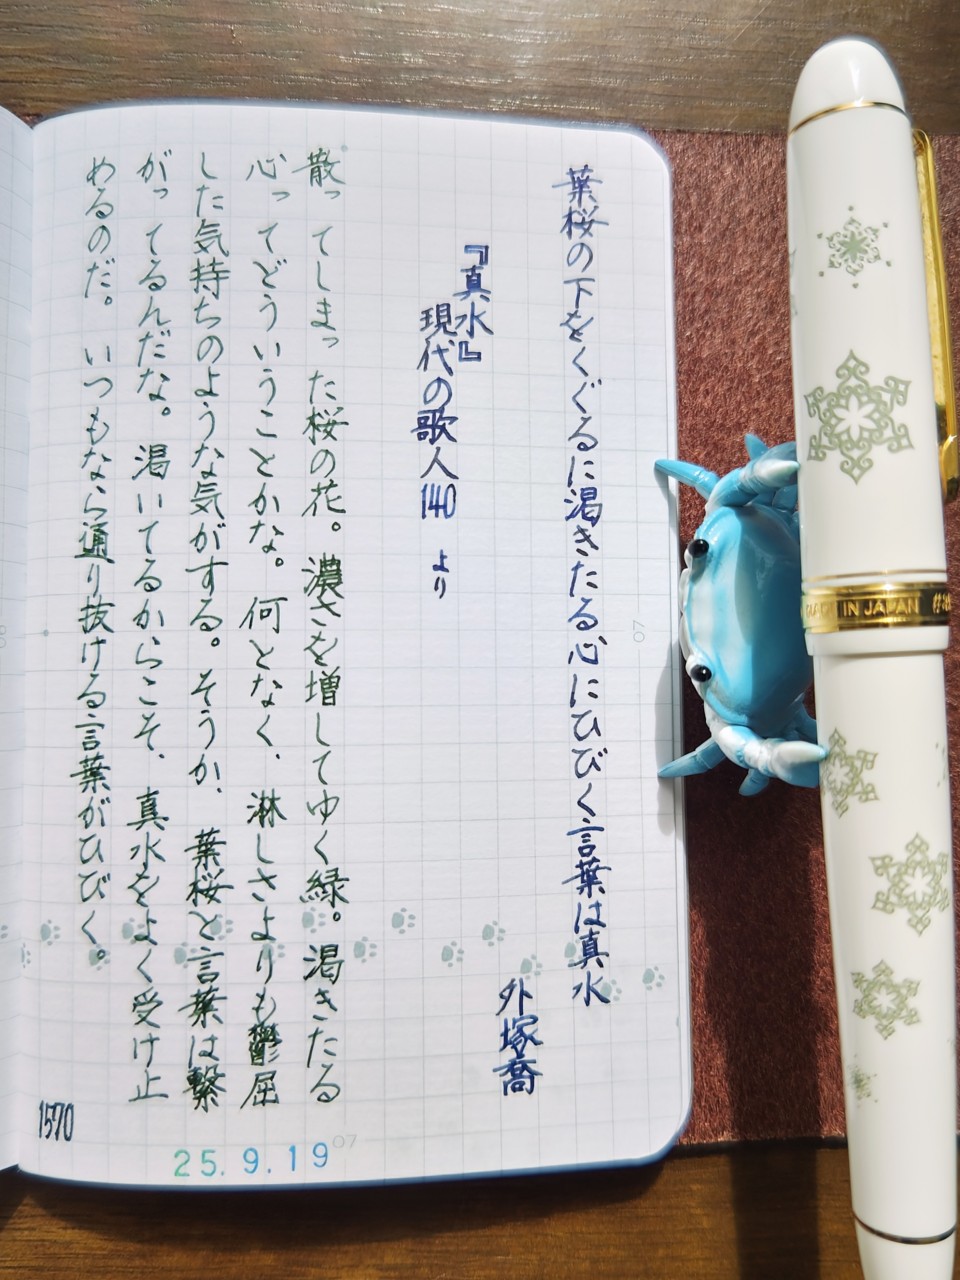 葉桜の下をくぐるに渇きたる心にひびく言葉は真水
外塚喬
『真水』
現代の歌人140 より
散ってしまった桜の花。濃さを増してゆく緑。渇きたる
心ってどういうことかな。何となく、淋しさよりも鬱屈
した気持ちのような気がする。そうか、葉桜と言葉は繋
がってるんだな。渇いてるからこそ、真水をよく受け止
めるのだ。いつもなら通り抜ける言葉がひびく。
1570
25.9.19
07
07
MADE IN JAPAN